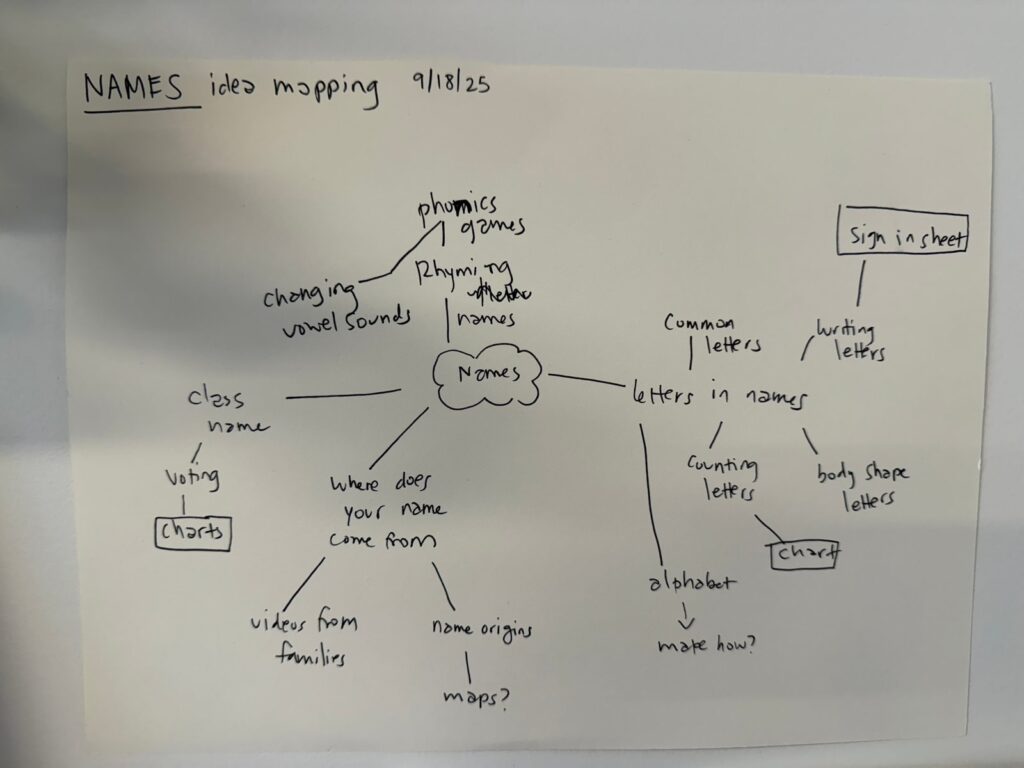 NAMES idea mapping 9/18/25
phonics
games
Rhyming
names
changing
vowel sounds
Names
class
name
voting
charts
where does
your name
come from
videos from
families
name origins
maps?
letters in names
common
letters
writing
letters
Sign in sheet
counting
letters
chart
body shape
letters
alphabet
make how?